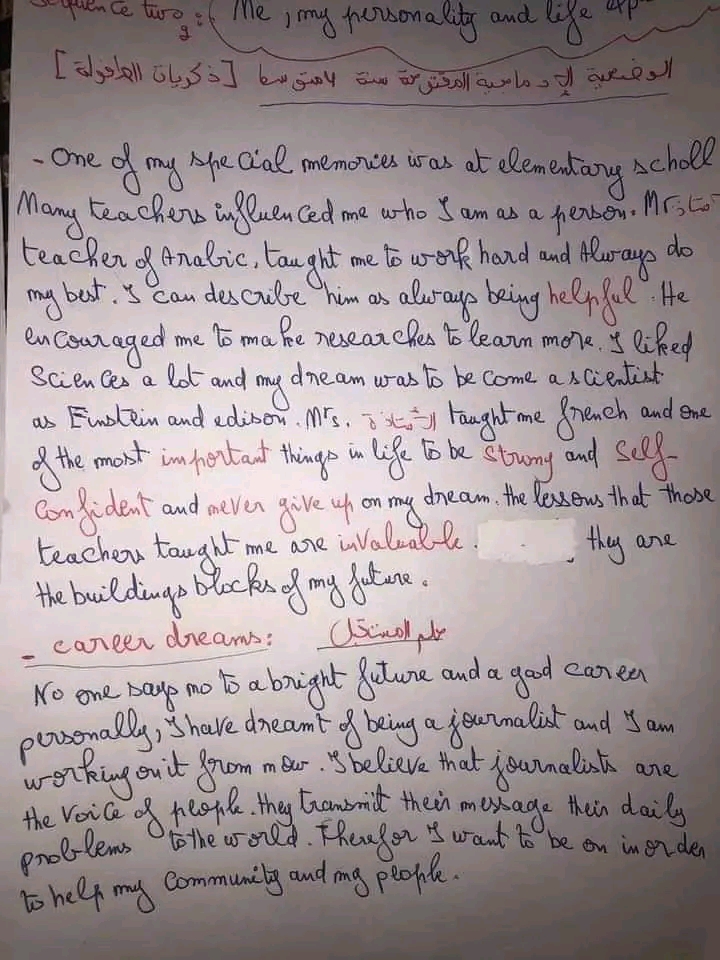 Sequence two : Me , my personality and life exp
الوضعية الإدماجية المقترحة سنة 4 متوسط [ذكريات الطفولة]
- One of my special memories was at elementary scholl
Many teachers influenced me who I am as a person. Mr ستاذ
teacher of Arabic, taught me to work hard and Always do
my best. I can describe him as always being helpful. He
encouraged me to make researches to learn more. I liked
Sciences a lot and my dream was to be come a scientist
as Einstein and edison. Mrs. الأستاذة taught me french and one
of the most important things in life to be strong and self-
confident and never give up on my dream. the lessons that those
teachers taught me are invaluable. they are
the buildings blocks of my future.
- career dreams: حلم المستقبل
No one says no to a bright future and a good career
personally, I have dreamt of being a journalist and I am
working on it from now. I believe that journalists are
the voice of people. they transmit their message their daily
problems to the world. Therefor I want to be on in order
to help my community and my people.